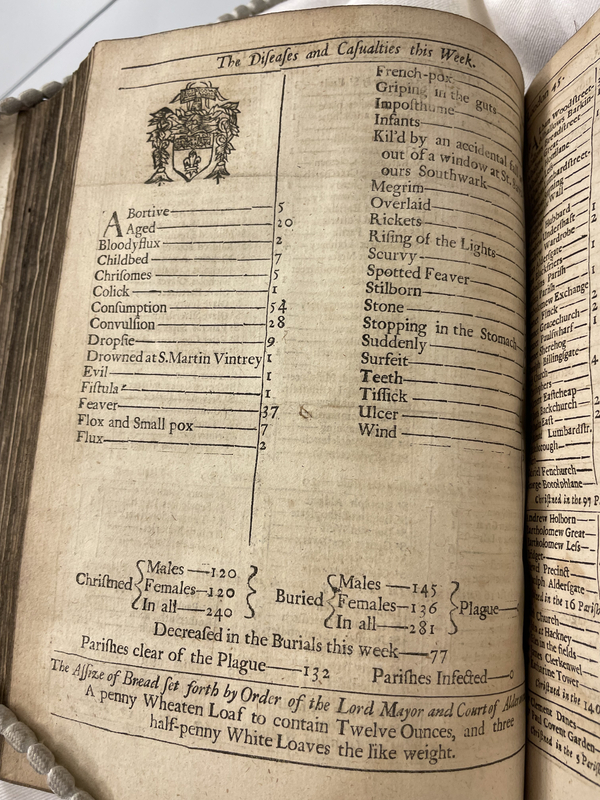 The Diſeaſes and Caſualties this Week.
Abortive 5
Aged 20
Bloodyflux 2
Childbed 7
Chriſomes 5
Colick 1
Conſumption 54
Convulſion 28
Dropſie 9
Drowned at S. Martin Vintrey 1
Evil 1
Fiſtula 1
Feaver 37
Flox and Small pox 7
Flux 2
French-pox
Griping in the guts
Impoſthume
Infants
Kil'd by an accidental
out of a window at St.
ours Southwark
Megrim
Overlaid
Rickets
Riſing of the Lights
Scurvy
Spotted Feaver
Stilborn
Stone
Stopping in the Stomach
Suddenly
Surfeit
Teeth
Tiſſick
Ulcer
Wind
Chriſtned { Males — 120
Females — 120
In all — 240 }
Buried { Males — 145
Females — 136
In all — 281 } Plague —
Decreaſed in the Burials this week — 77
Pariſhes clear of the Plague — 132 Pariſhes Infected — 0
The Aſſize of Bread ſet forth by Order of the Lord Mayor and Court of
A penny Wheaten Loaf to contain Twelve Ounces, and three
half-penny White Loaves the like weight.
Woodſtreet
Wardrobe 2
Pariſh 1
Exchange
Finck 2
Gracechurch 2
Paulſwharf 1
Sherehog
Billingſgate
Eaſtcheap
Backchurch 2
Eaſt
Lumbardſtr.
Fenchurch
Botolphlane
Chriſtned in the 97
Holborn
Bartholomew Great
Bartholomew Leſs
Precinct
Alderſgate
in the 16
Church
at Hackney
in the fields
Clerkenwel
Tower
Chriſtned in the 14
Clement Danes
Paul Covent Garden
Chriſtned in the 5